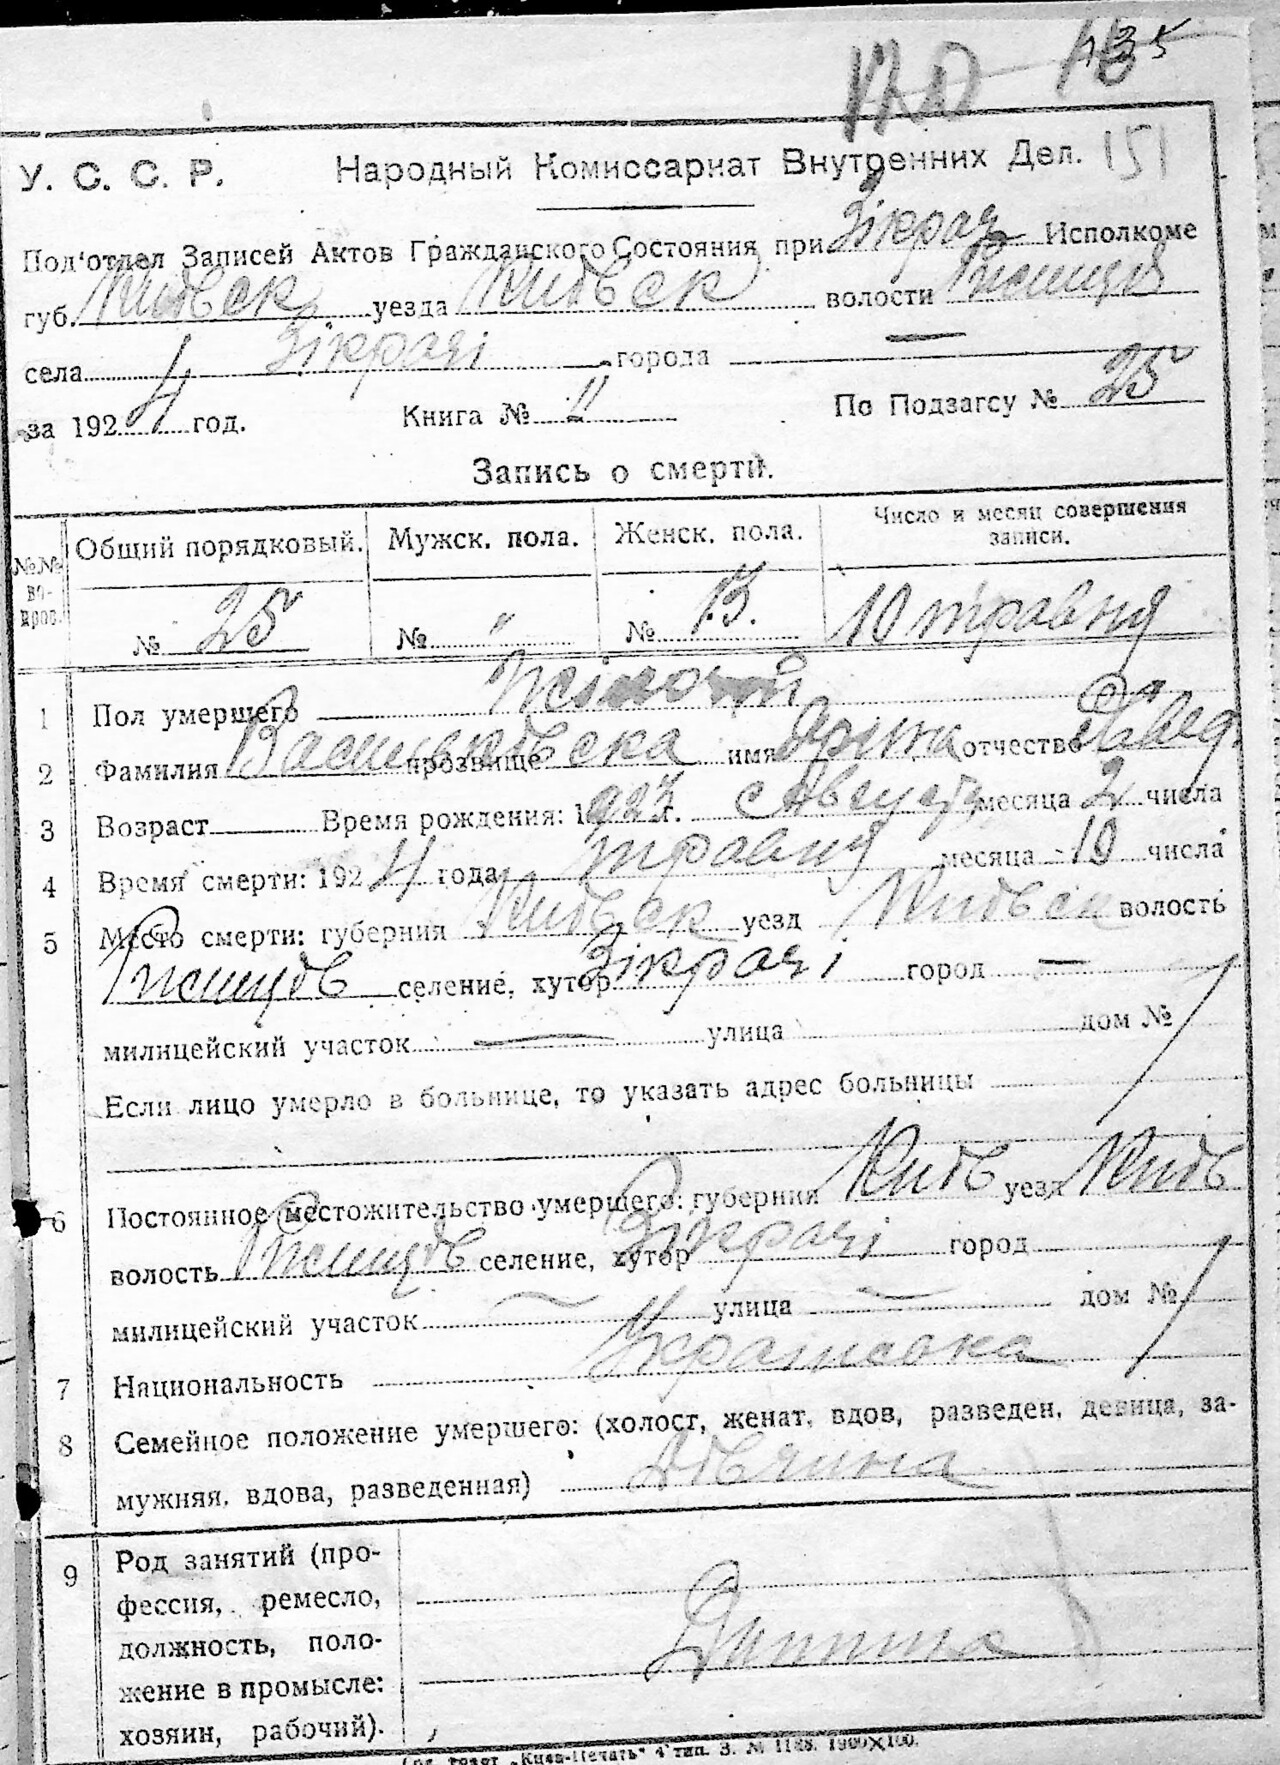 135
151
У. С. С. Р. Народный Комиссариат Внутренних Дел.
Под'отдел Записей Актов Гражданского Состояния при Зікрач Исполкоме
губ. Київск уезда Київск волости Ржищів
села Зікрачі города —
за 1924 год. Книга № " По Подзагсу № 25
Запись о смерти.
№№ во-прос. Общий порядковый. Мужск. пола. Женск. пола. Число и месяц совершения записи.
№ 25 № " № 13. 10 травня
1 Пол умершего Жіночий
2 Фамилия прозвище Васильківска имя Ярина отчество Давид.
3 Возраст Время рождения: 1923 г. Август месяца 2 числа
4 Время смерти: 1924 года травня месяца 10 числа
5 Место смерти: губерния Київск уезд Київск волость
Ржищів селение, хутор Зікрачі город —
милицейский участок — улица дом №
Если лицо умерло в больнице, то указать адрес больницы
6 Постоянное местожительство умершего: губерния Київ уезд Київ
волость Ржищів селение, хутор Зікрачі город
милицейский участок — улица — дом №
7 Национальность Украинка
8 Семейное положение умершего: (холост, женат, вдов, разведен, девица, за-
мужняя, вдова, разведенная) дівчина
9 Род занятий (про-
фессия, ремесло,
должность, поло-
жение в промысле:
хозяин, рабочий).
Дитина
„Киев-Печать" 4 тип. З. № 1188. 1900×100.